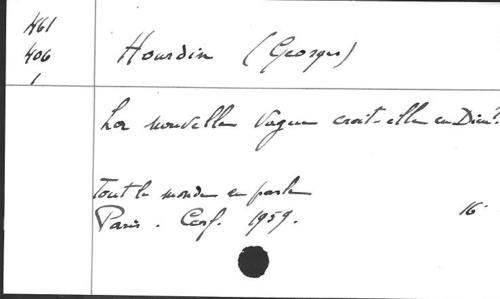 461
406
1
Hourdin (Georges)
La nouvelle Vague croit-elle en Dieu?
Tout le monde en parle
Paris. Cerf. 1959.
16